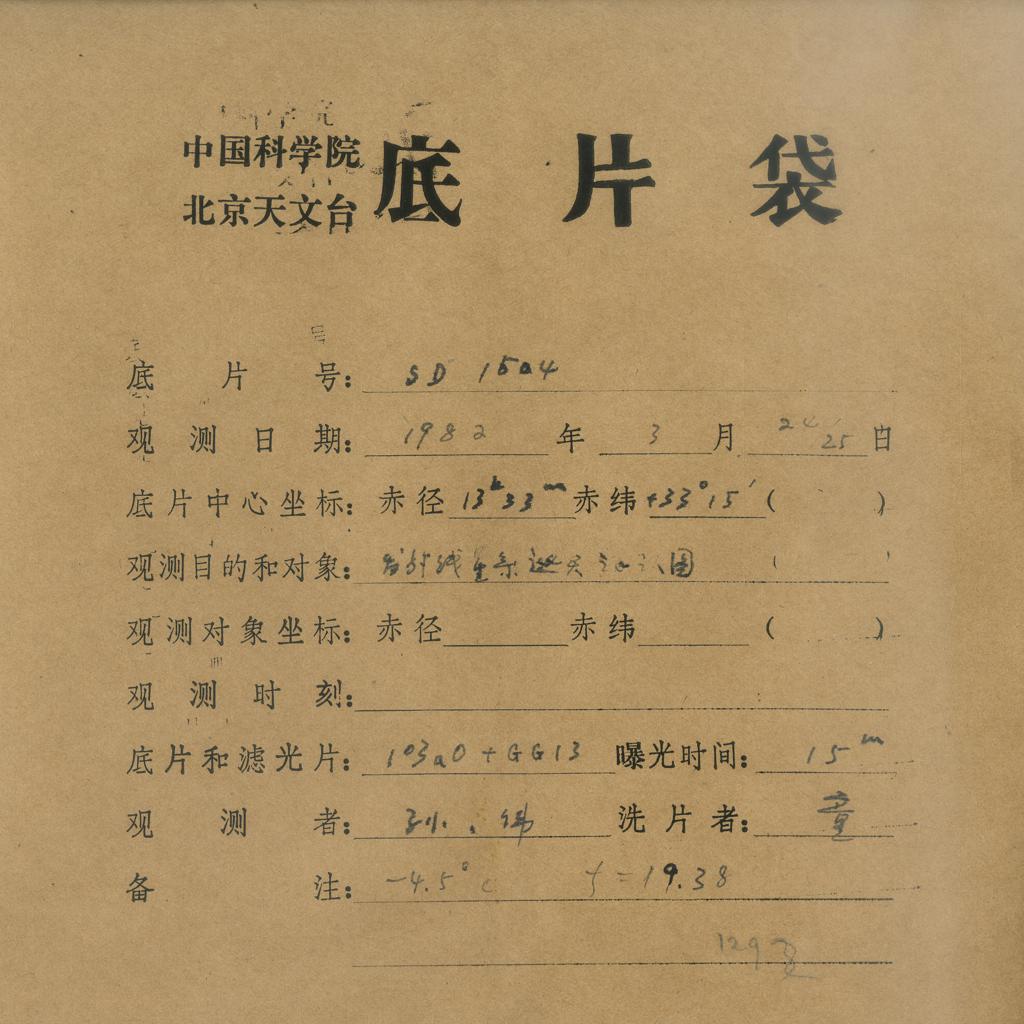 中国科学院
北京天文台
底片袋
底片号: SD 1504
观测日期: 1982 年 3 月 24/25 日
底片中心坐标: 赤径 13h33m 赤纬 +33°15′ ( )
观测目的和对象:
观测对象坐标: 赤径 赤纬 ( )
观测时刻:
底片和滤光片: 103aO+GG13 曝光时间: 15m
观测者: 孙、 洗片者: 童
备注: -4.5°c f=19.38
129